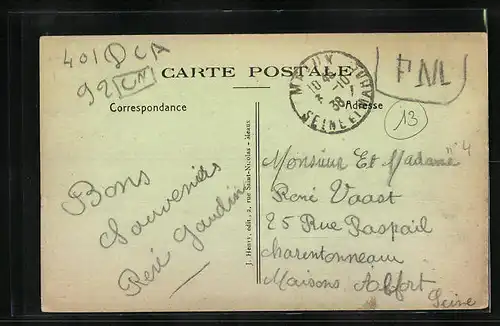 401 DCA
92 CM
CARTE POSTALE
Correspondance
Adresse
MEAUX
SEINE ET MARNE
PNL
13
Bons
Souvenirs
René Gaudin
J. Henry, édit., 2, rue Saint-Nicolas - Meaux
Monsieur Et Madame
René Vaast
25 Rue Raspail
charentonneau
Maisons Alfort
Seine